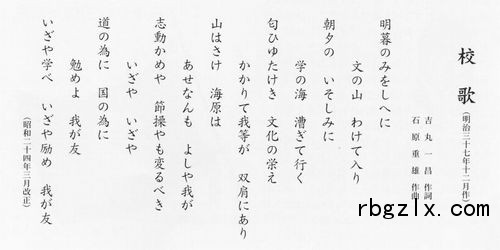 校歌
(明治三十七年十二月作)
吉丸一昌 作詞
石原重雄 作曲
明暮のみをしへに
文の山 わけて入り
朝夕の いそしみに
学の海 漕ぎて行く
匂ひゆたけき 文化の栄え
かかりて我等が 双肩にあり
山はさけ 海原は
あせなんも よしや我が
志動かめや 節操やも変るべき
いざや いざや
道の為に 国の為に
勉めよ 我が友
いざや学べ いざや励め 我が友
(昭和二十四年三月改正)
rbgzlx.com